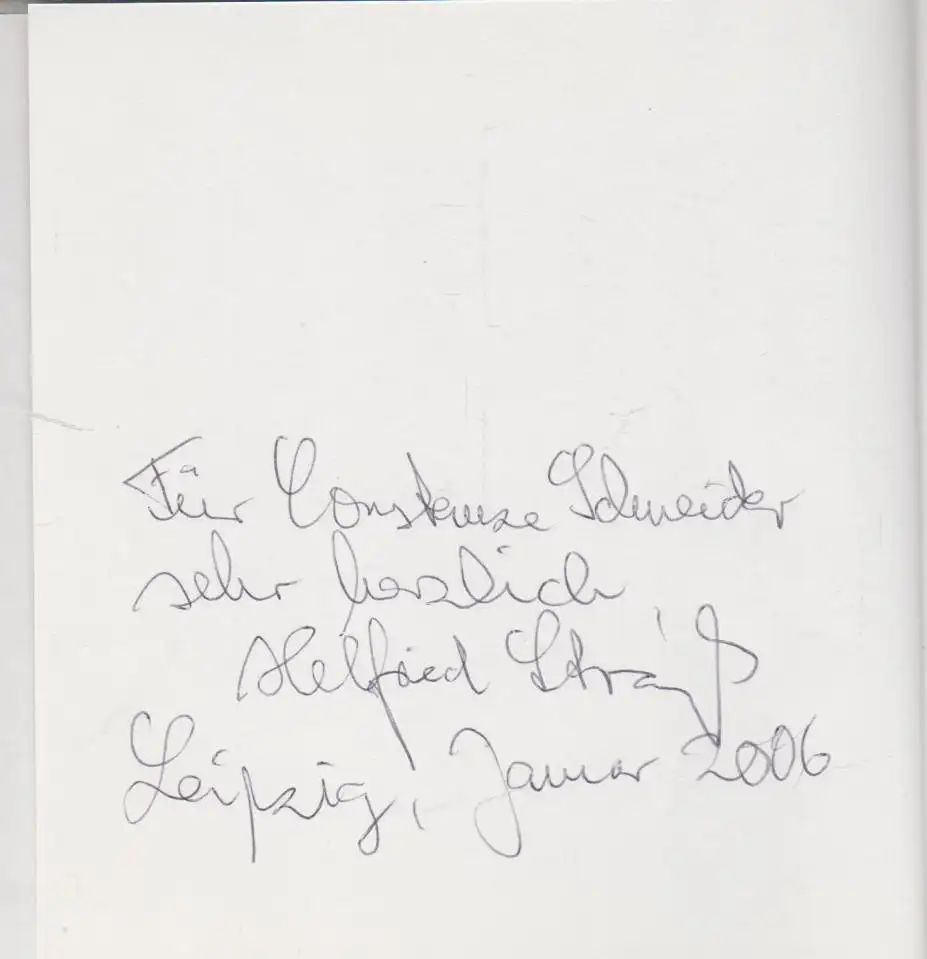 Für Constanze Schneider
sehr herzlich
Helfried Strauß
Leipzig, Januar 2006